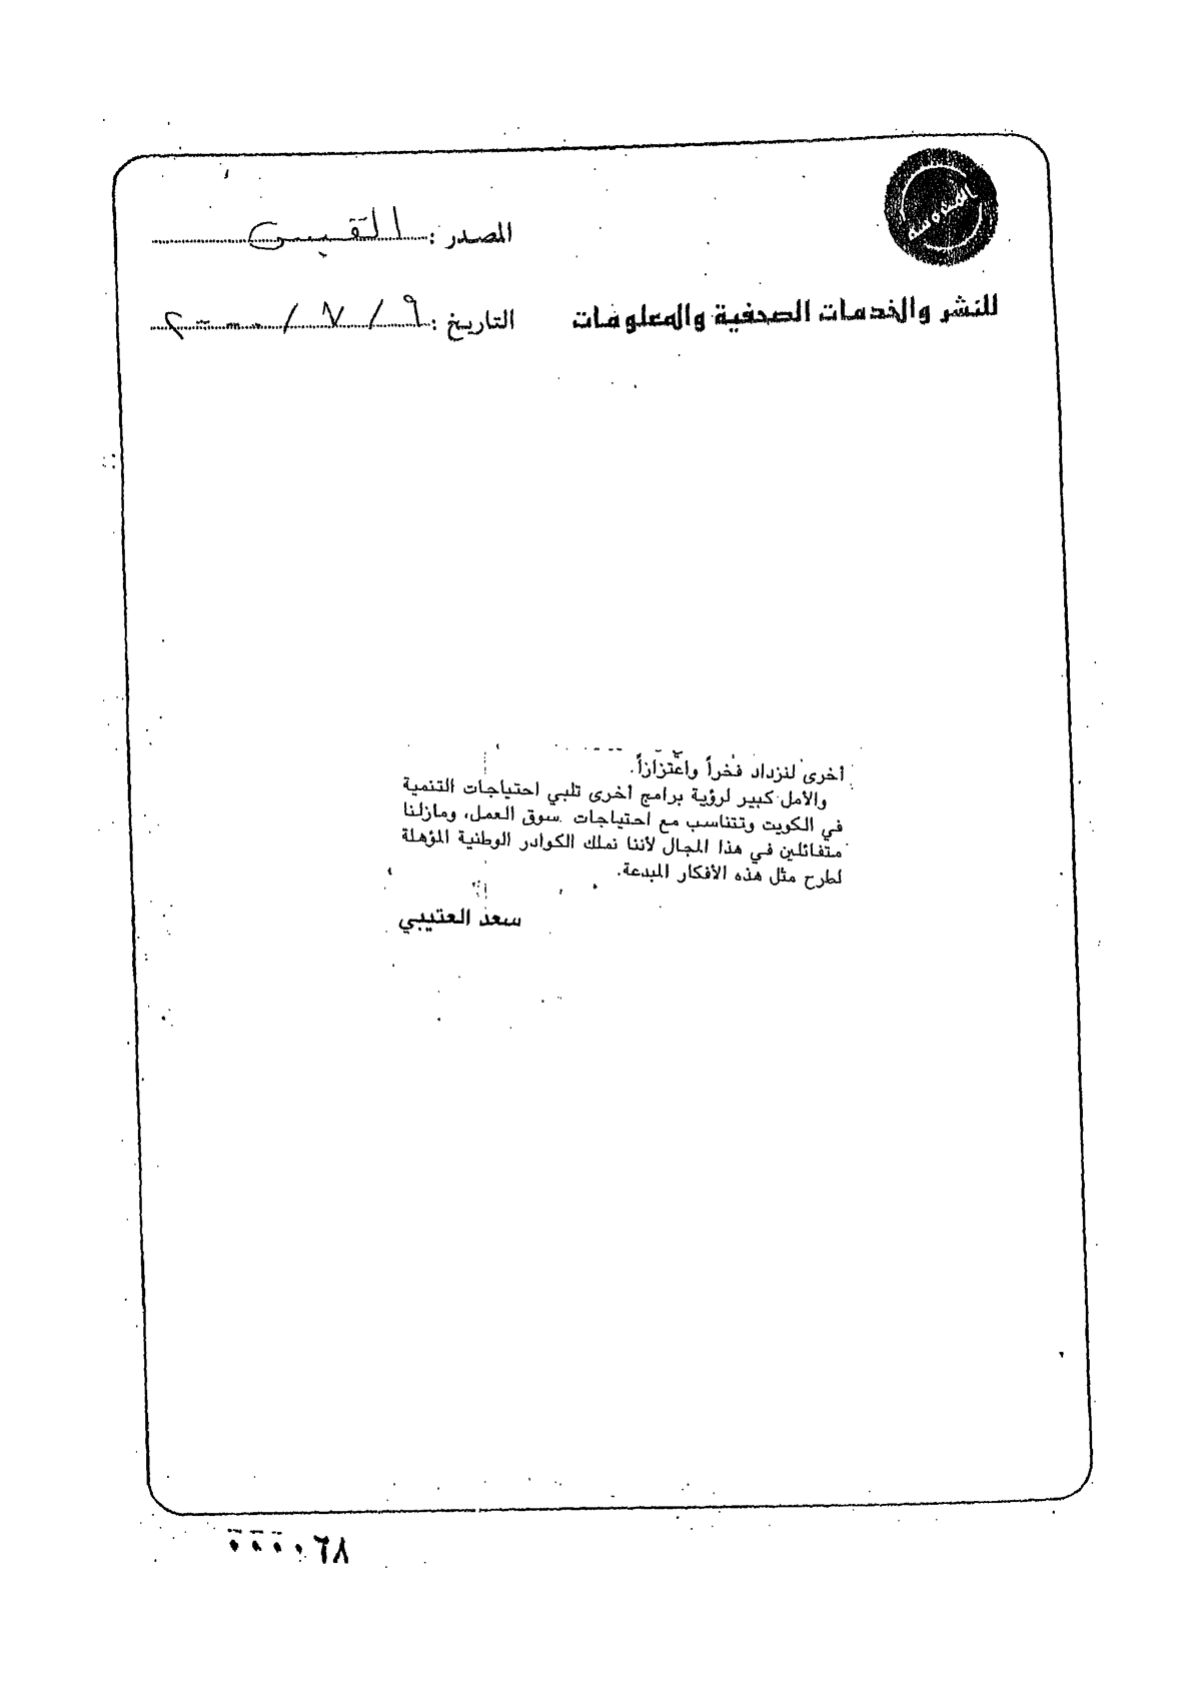 المصدر : القبس
للنشر والخدمات الصحفية والمعلومات
التاريخ : ٩ / ٧ / ٢٠٠٠
أخرى لنزداد فخراً واعتزازاً.
والأمل كبير لرؤية برامج أخرى تلبي احتياجات التنمية
في الكويت وتتناسب مع احتياجات سوق العمل، ومازلنا
متفائلين في هذا المجال لأننا نملك الكوادر الوطنية المؤهلة
لطرح مثل هذه الأفكار المبدعة.
سعد العتيبي